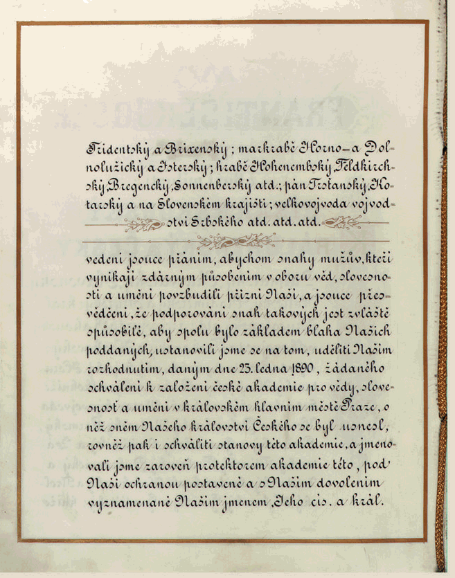 Tridentský a Brixenský; markrabě Horno- a Dol-
nolužický a Isterský; hrabě Hohenembský, Feldkirch-
ský, Bregencký, Sonnenberský atd.; pán Trstanský, Ko-
tarský a na Slovenském krajišti; velkovojvoda vojvod-
ství Srbského atd. atd. atd.
vedeni jsouce přáním, abychom snahy mužův, kteří
vynikají zdárným působením v oboru věd, slovesno-
sti a umění povzbudili přízní Naší, a jsouce přes-
vědčeni, že podporování snah takových jest zvláště
způsobilé, aby spolu bylo základem blaha Našich
poddaných, ustanovili jsme se na tom, uděliti Naším
rozhodnutím, daným dne 23. ledna 1890, žádaného
schválení k založení české akademie pro vědy, slove-
snosť a umění v královském hlavním městě Praze, o
něž sněm Našeho království Českého se byl usnesl,
rovněž pak i schváliti stanovy této akademie, a jmeno-
vali jsme zároveň protektorem akademie této, pod
Naší ochranou postavené a s Naším dovolením
vyznamenané Naším jmenem, Jeho cís. a král.